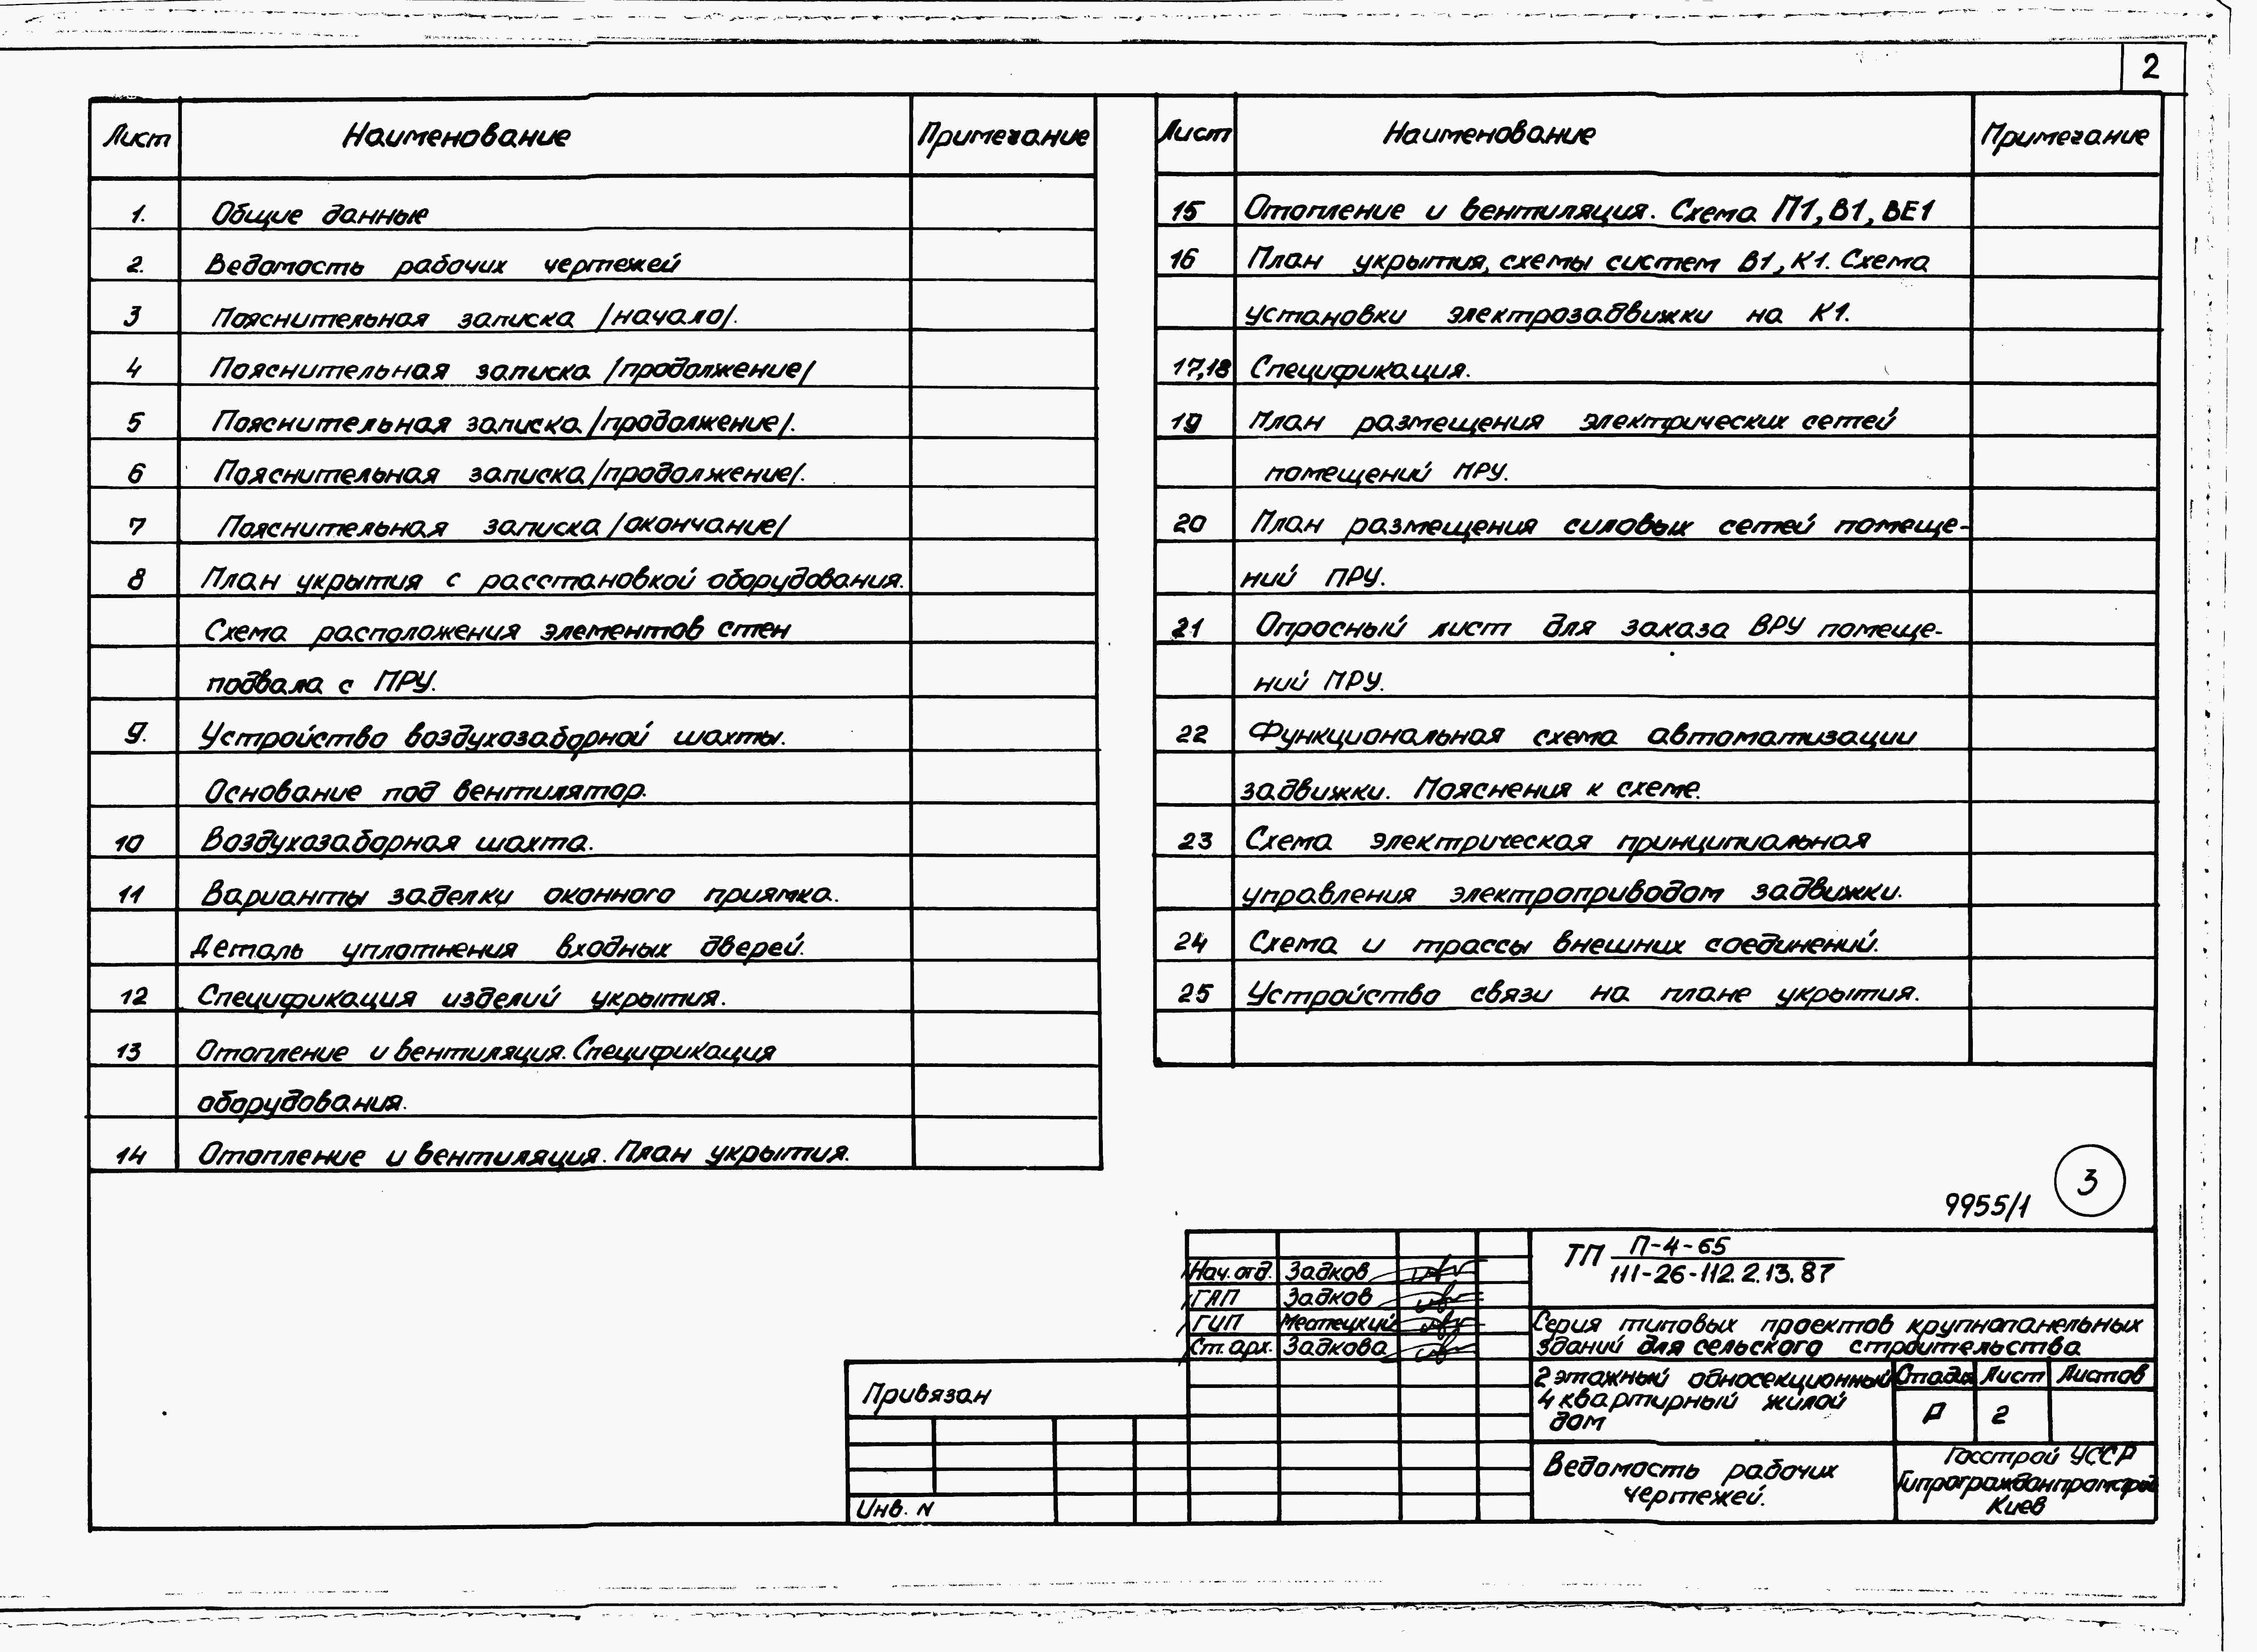 2
Лист Наименование Примечание
1. Общие данные
2. Ведомость рабочих чертежей
3 Пояснительная записка /начало/.
4 Пояснительная записка /продолжение/
5 Пояснительная записка /продолжение/.
6 Пояснительная записка /продолжение/.
7 Пояснительная записка /окончание/
8 План укрытия с расстановкой оборудования.
Схема расположения элементов стен
подвала с ПРУ.
9. Устройство воздухозаборной шахты.
Основание под вентилятор.
10 Воздухозаборная шахта.
11 Варианты заделки оконного приямка.
Деталь уплотнения входных дверей.
12 Спецификация изделий укрытия.
13 Отопление и вентиляция. Спецификация
оборудования.
14 Отопление и вентиляция. План укрытия.
Лист Наименование Примечание
15 Отопление и вентиляция. Схема П1, В1, ВЕ1
16 План укрытия, схемы систем В1, К1. Схема
установки электрозадвижки на К1.
17,18 Спецификация.
19 План размещения электрических сетей
помещений ПРУ.
20 План размещения силовых сетей помеще-
ний ПРУ.
21 Опросный лист для заказа ВРУ помеще-
ний ПРУ.
22 Функциональная схема автоматизации
задвижки. Пояснения к схеме.
23 Схема электрическая принципиальная
управления электроприводом задвижки.
24 Схема и трассы внешних соединений.
25 Устройство связи на плане укрытия.
3
9955/1
ТП П-4-65
111-26-112.2.13.87
Нач. отд. Задков
ГАП Задков
ГИП Местецкий
Ст. арх. Задкова
Серия типовых проектов крупнопанельных
зданий для сельского строительства
2 этажный односекционный
4 квартирный жилой
дом
Стадия Лист Листов
Р 2
Привязан
Инв. N
Ведомость рабочих
чертежей.
Госстрой УССР
Гипрогражданпромстрой
Киев